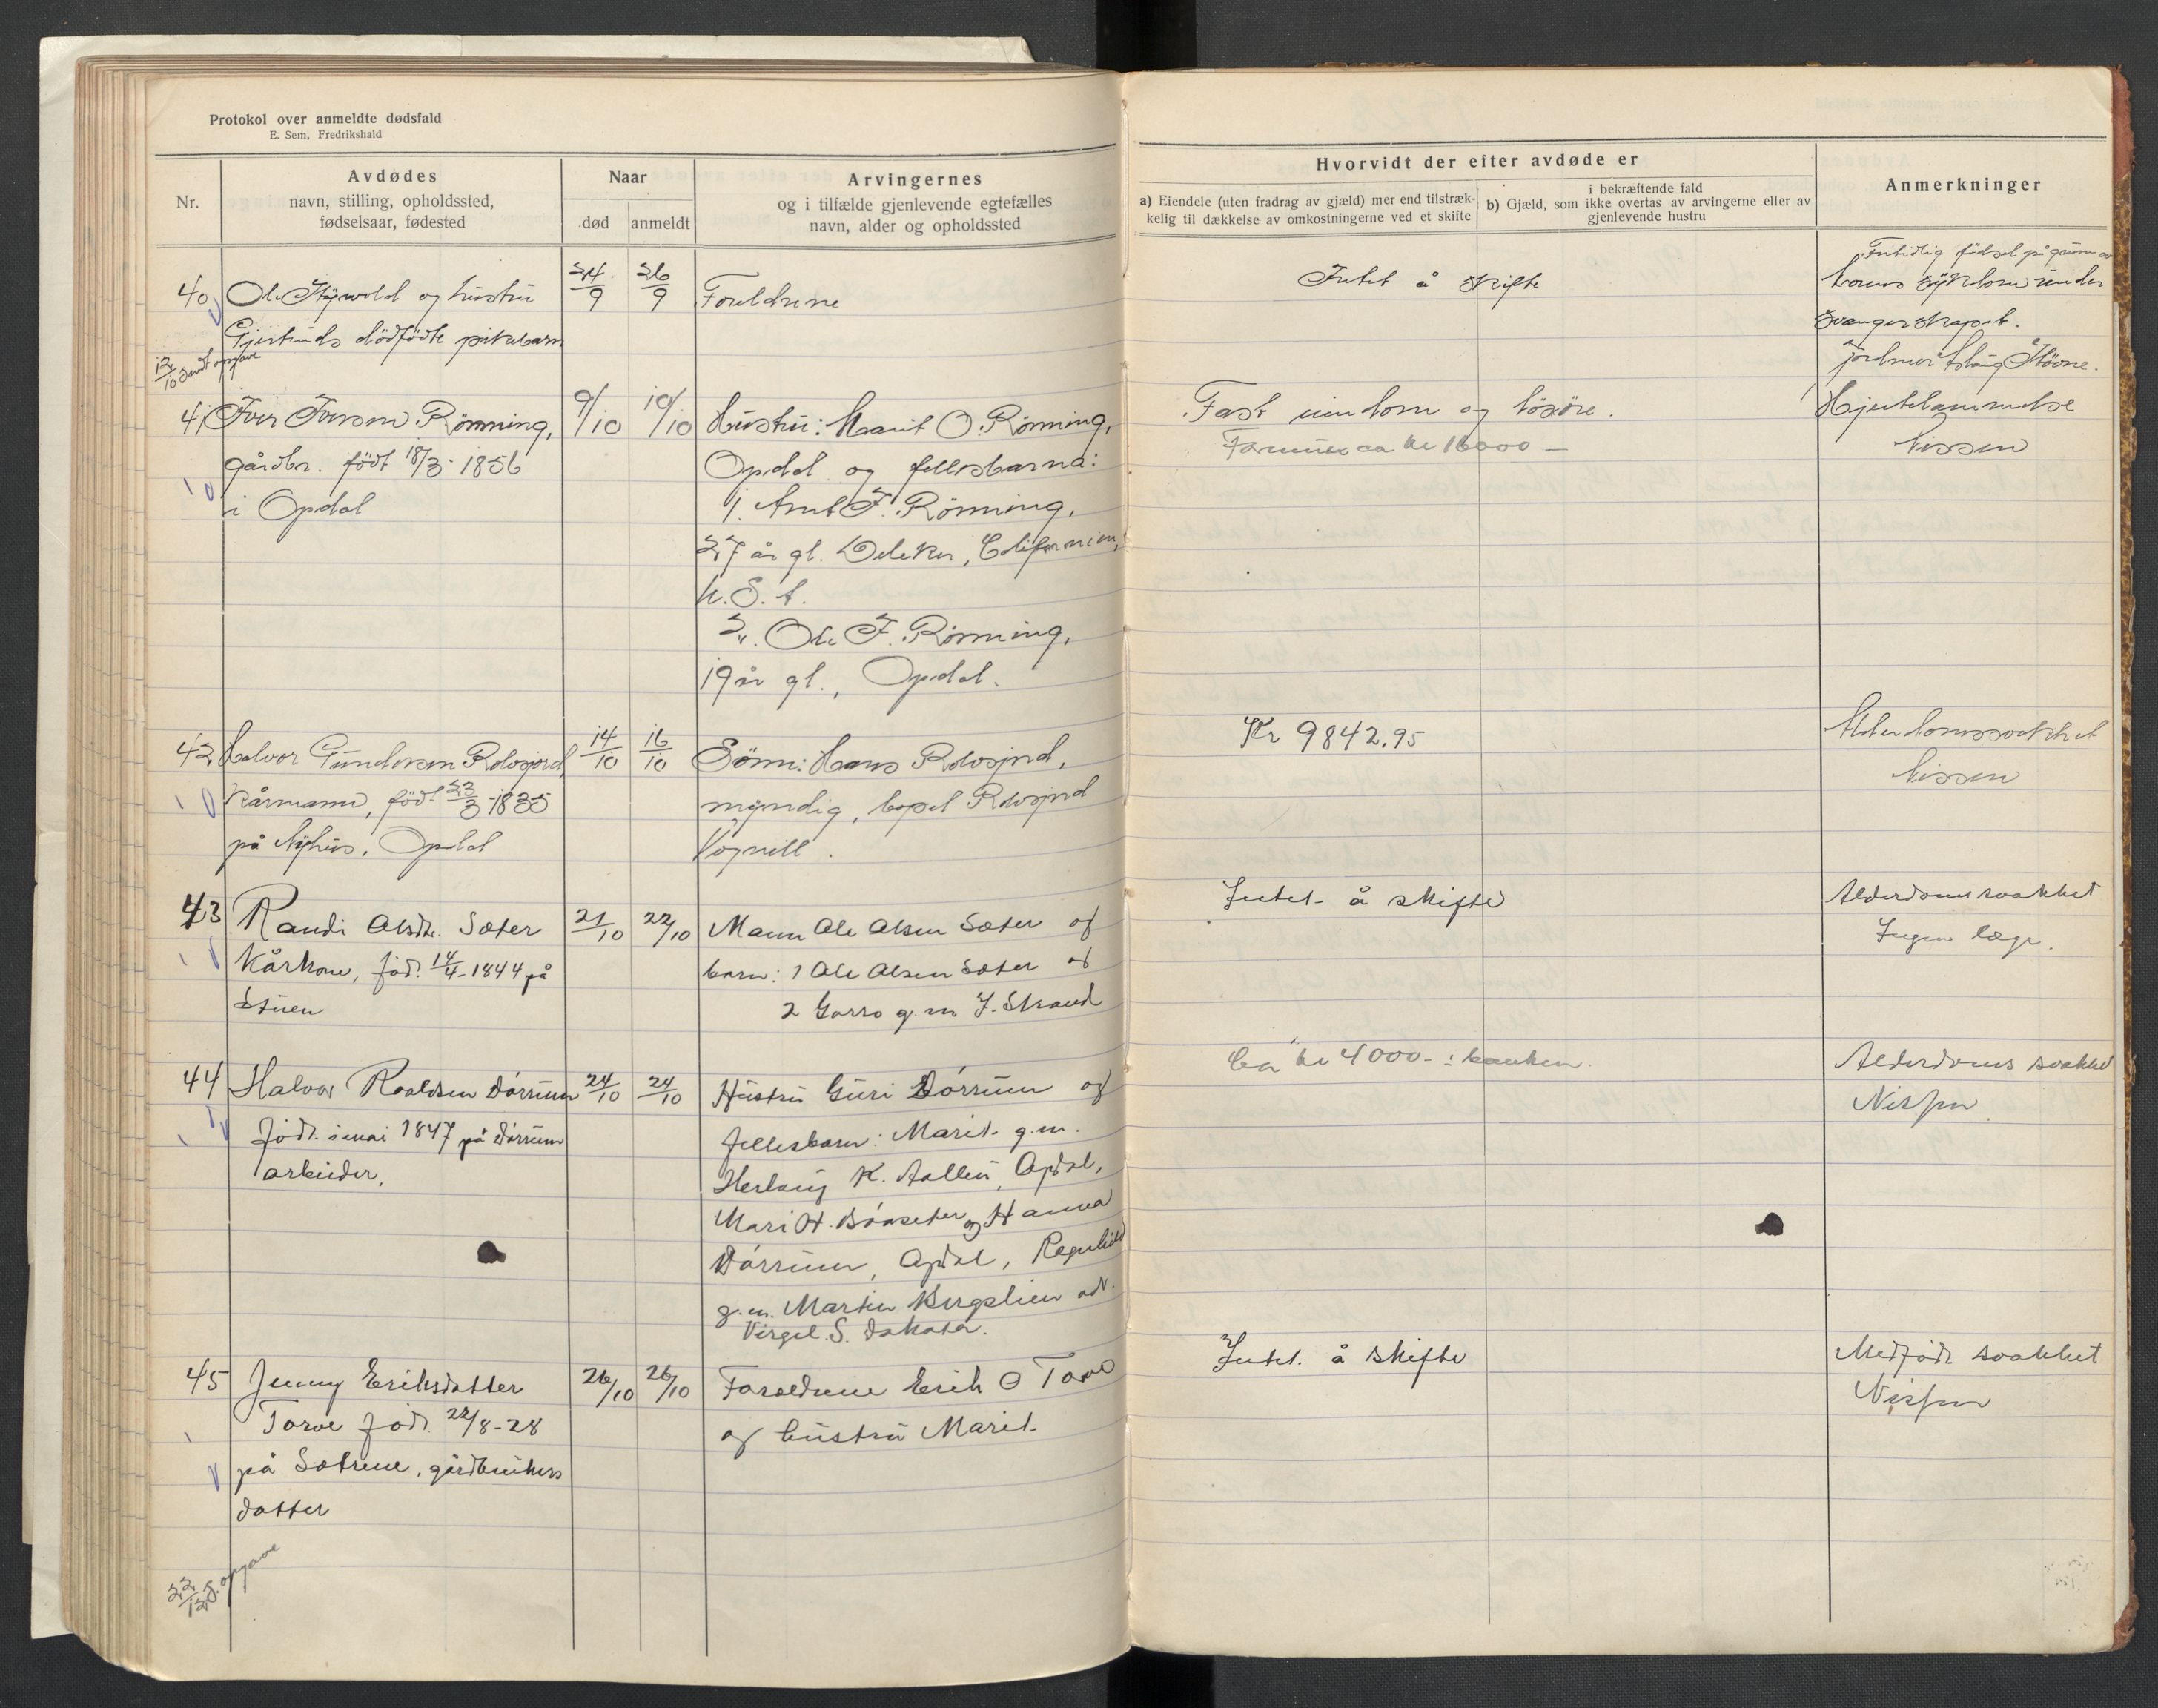 Protokol over anmeldte dødsfald
E. Sem, Fredrikshald
Nr.
Avdødes
navn, stilling, opholdssted,
fødselsaar, fødested
Naar
død
anmeldt
Arvingernes
og i tilfælde gjenlevende egtefælles
navn, alder og opholdssted
Hvorvidt der efter avdøde er
a) Eiendele (uten fradrag av gjæld) mer end tilstræk-
kelig til dækkelse av omkostningerne ved et skifte
i bekræftende fald
b) Gjæld, som ikke overtas av arvingerne eller av
gjenlevende hustru
Anmerkninger
40 Ole og hustru 24/9 26/9 Foreldrene
Gjertruds dödfödte pikebarn
12/10 sendt opgave
Intet å skifte
Fortidlig födsel på grunn av
konens sykdom under
svangerskapet.
jordmor
41 Iver Iversen Rönning, 9/10 10/10 Hustru: Marit O. Rönning,
gårdbr. födt 18/3 1856 Opdal og fellesbarna:
i Opdal 1. Arnt I. Rönning,
27 år gl. Californien,
U. S. A.
2. Ole I. Rönning,
19 år gl., Opdal.
Fast eiendom og lösöre.
Formues ca kr 16000 –
Hjertelammelse
Nissen
42 Halvor Gundersen Rolvsjord, 14/10 16/10 Sönn: Hans Rolvsjord,
Kårmann, födt 23/3 1835 myndig, bopel Rolvsjord
på Nyhus, Opdal Vognill.
Kr 9842.95
Alderdomssvakhet
Nissen
43 Randi Olsdtr. Sæter 21/10 22/10 Mann Ole Olsen Sæter og
Kårkone, född. 14/4-1844 på barn: 1 Ole Olsen Sæter og
Stuen 2 g. m. J. Strand
Intet å skifte
Alderdomssvakhet
Ingen læge.
44 Halvor Roaldsen Dörrum 24/10 24/10 Hustru Guri Dörrum og
födt. i mai 1847 på Dörrum fellesbarn: Marit g.m.
arbeider, K. Opdal,
Mari H. og Hanna
Dörrum, Opdal, Regnhild
g.m. Martin
Virgel. S. Dakota.
Ca kr 4000- i banken.
Alderdoms svakhet
Nissen
45 Jenny Eriksdatter 26/10 26/10 Foreldrene Erik O Torve
Torve född. 22/8-28 og hustru Marit
på Sætrene, gårdbrukers
datter
22/12 S. opgave
Intet å skifte
Medfödt svakhet
Nissen